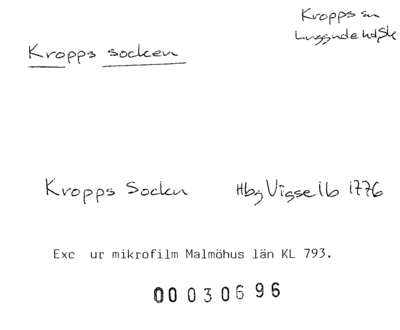 Kropps sn
Luggude hd Sk
Kropps socken
Kropps Sockn Hbg Vigselb 1776
Exc ur mikrofilm Malmöhus län KL 793.
00030696